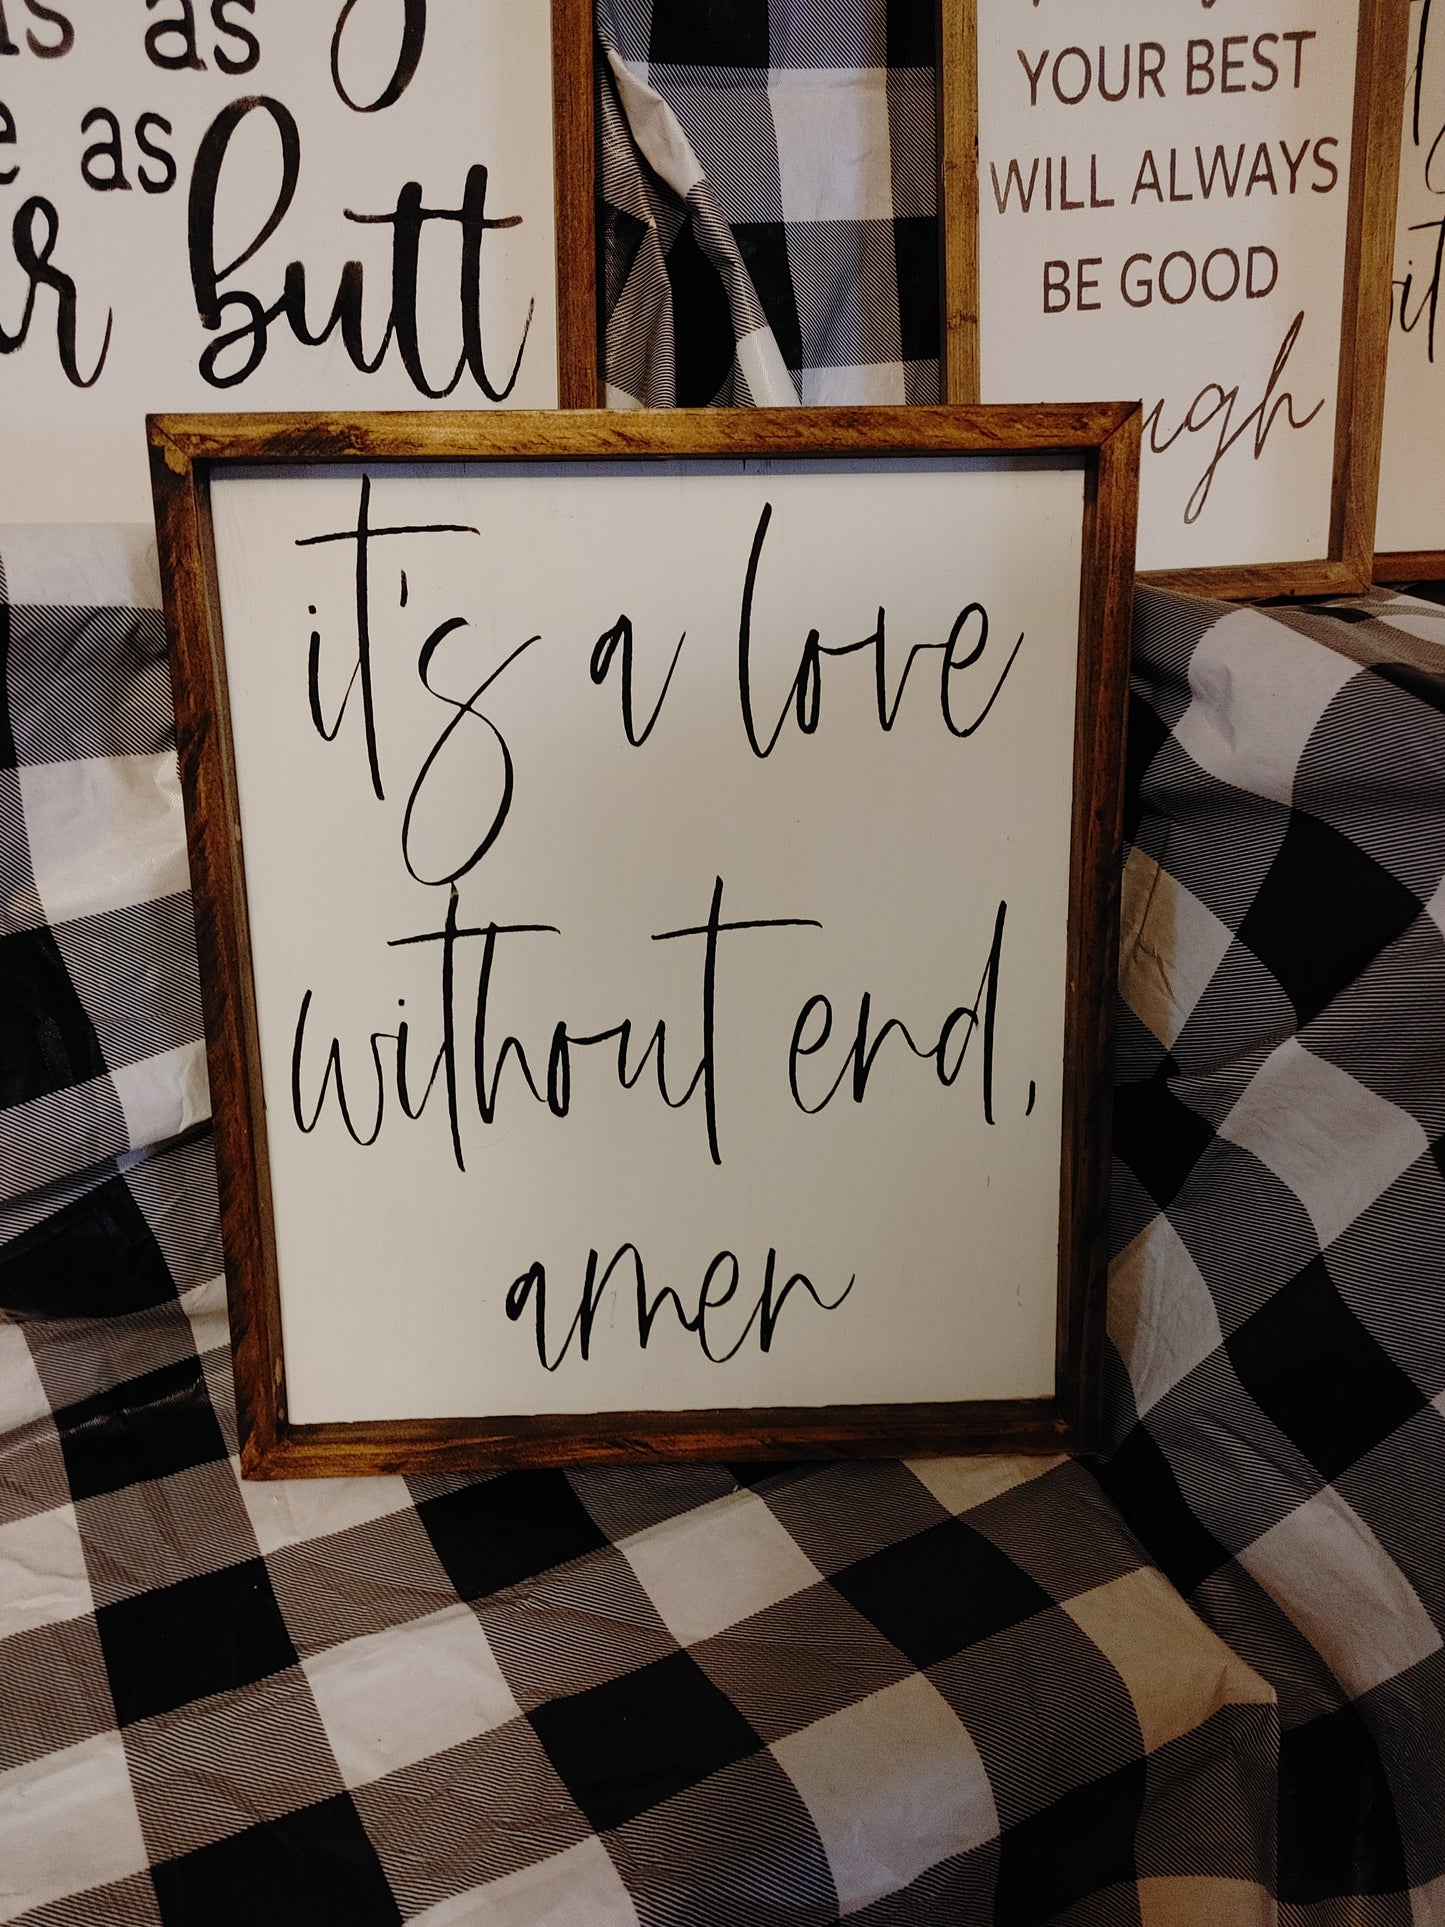 as
as
butt
YOUR BEST
WILL ALWAYS
BE GOOD
it's a love
without end,
amen